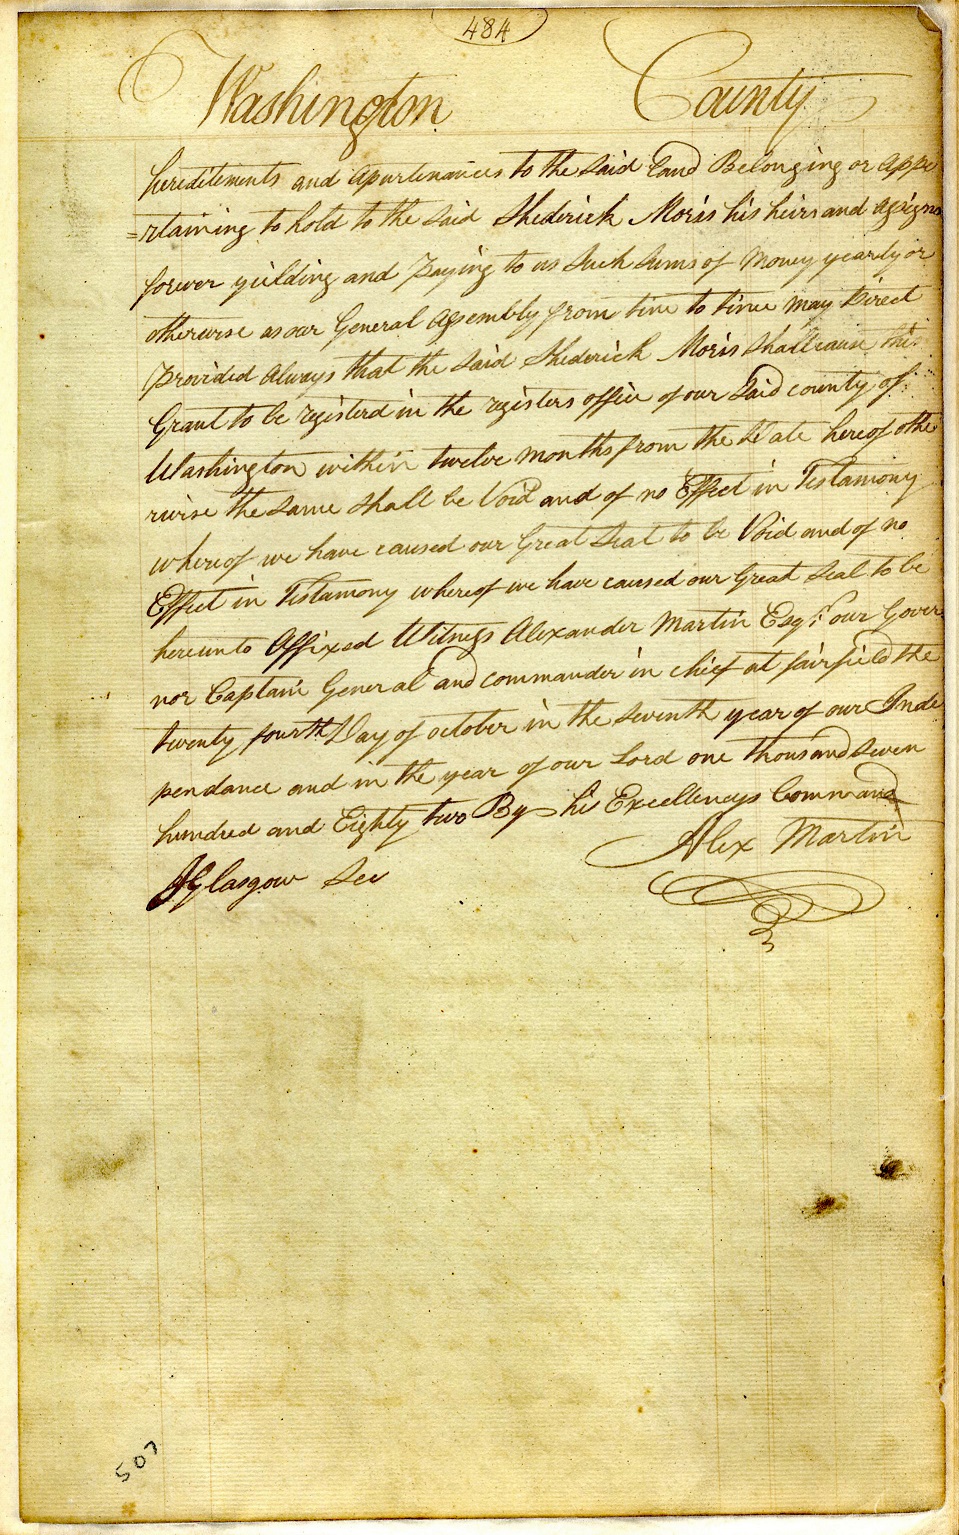 484
Washington County
hereditements and apurtenances to the said Land Belonging or Appe
=rtaining to hold to the said Shederick Moris his heirs and assigns
forever yielding and Paying to us Such Sums of Money yearly or
otherwise as our General Assembly from time to time may Direct
Provided Always that the said Shederick Moris shall cause this
Grant to be registerd in the registers office of our Said county of
Washington within twelve months from the Date hereof othe
rwise the same shall be Void and of no Effect in Testamony
whereof we have caused our Great Seal to be Void and of no
Effect in Testamony whereof we have caused our Great Seal to be
hereunto Affixed Witness Alexander Martin Esqr. our Gover
nor Captain General and commander in chief at fairfield the
twenty fourth Day of october in the seventh year of our Inde
pendance and in the year of our Lord one thousand seven
hundred and Eighty two By his Excellencys Command
Alex Martin
J Glasgow Sec
507